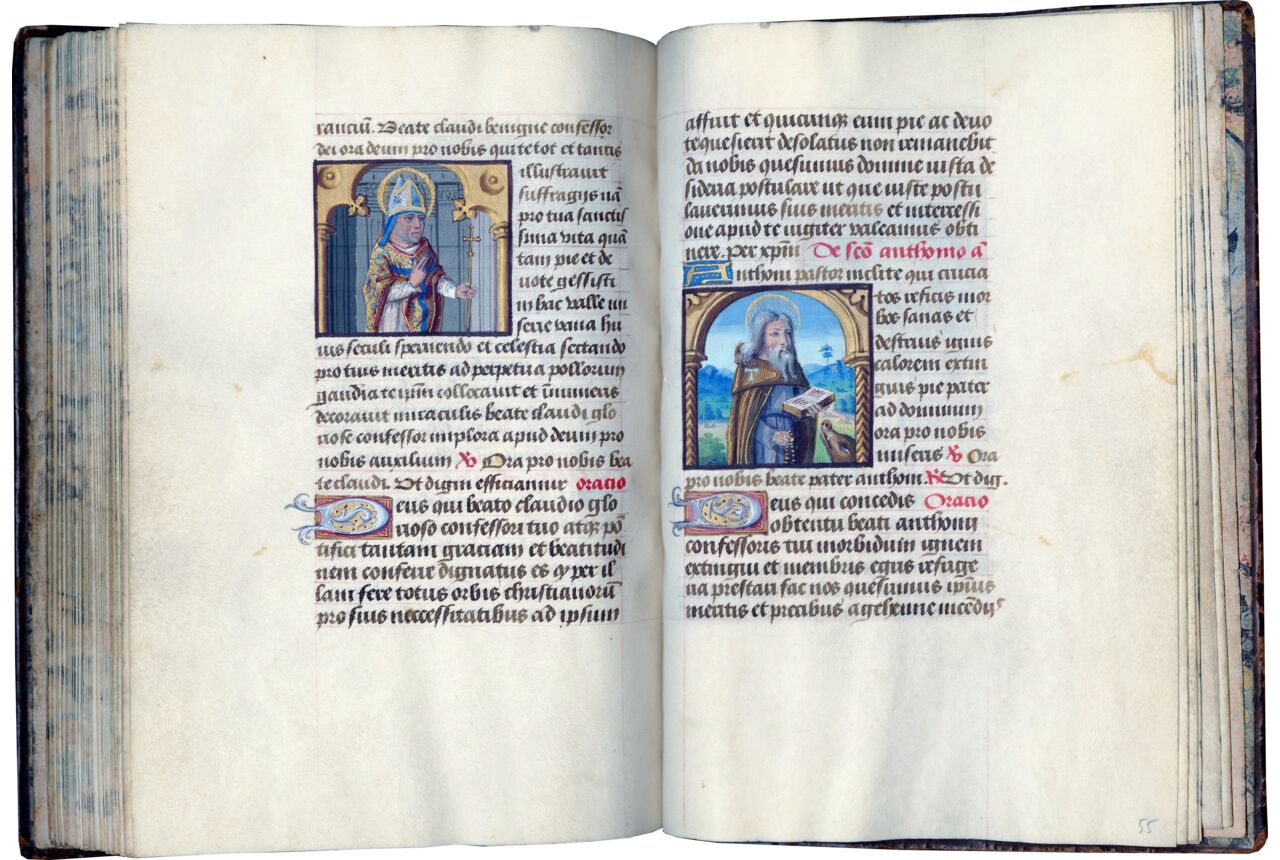 rantiũ. Beate claudi benigne confessor
dei ora deum pro nobis qui te tot et tantis
illustravit
suffragijs nã
pro tua sanctis
sima vita quã
tam pie et de
vote gessisti
in hac valle mi
serie vana hu
ius seculi spernendo et celestia sectando
pro tuis meritis ad perpetua pollorum
gaudia te ip̃m collocavit et ĩnumeris
decoravit miraculis beate claudi glo
riose confessor implora apud deum pro
nobis auxilium ℣ Ora pro nobis bea
te claudi. Ut digni efficiamur oracio
Deus qui beato claudio glo
rioso confessori tuo atqꝫ põ
tifici tantam graciam et beatitudi
nem conferre dignatus es ꝙ per il
lam fere totus orbis christianorũ
pro suis neccessitatibus ad ipsum
affuit et quicunqꝫ eum pie ac devo
te quesierit desolatus non remanebit
da nobis quesumus domine iusta de
sideria postulare ut que iuste postu
laverimus suis meritis et intercessi
one apud te iugiter valeamus obti
nere. Per xp̃m De sc̃o anthonio ã
Anthoni pastor inclite qui crucia
tos reficis mor
bos sanas et
destruis ignis
calorem extin
guis pie pater
ad dominum
ora pro nobis
miseris ℣ Ora
pro nobis beate pater anthoni ℟ Ut dig.
Deus qui concedis Oracio
obtentu beati anthonij
confessoris tui morbidum ignem
extingui et membris egris refrige
ria prestari fac nos quesumus ip̃ius
meritis et precibus a gehenne incendijs
55